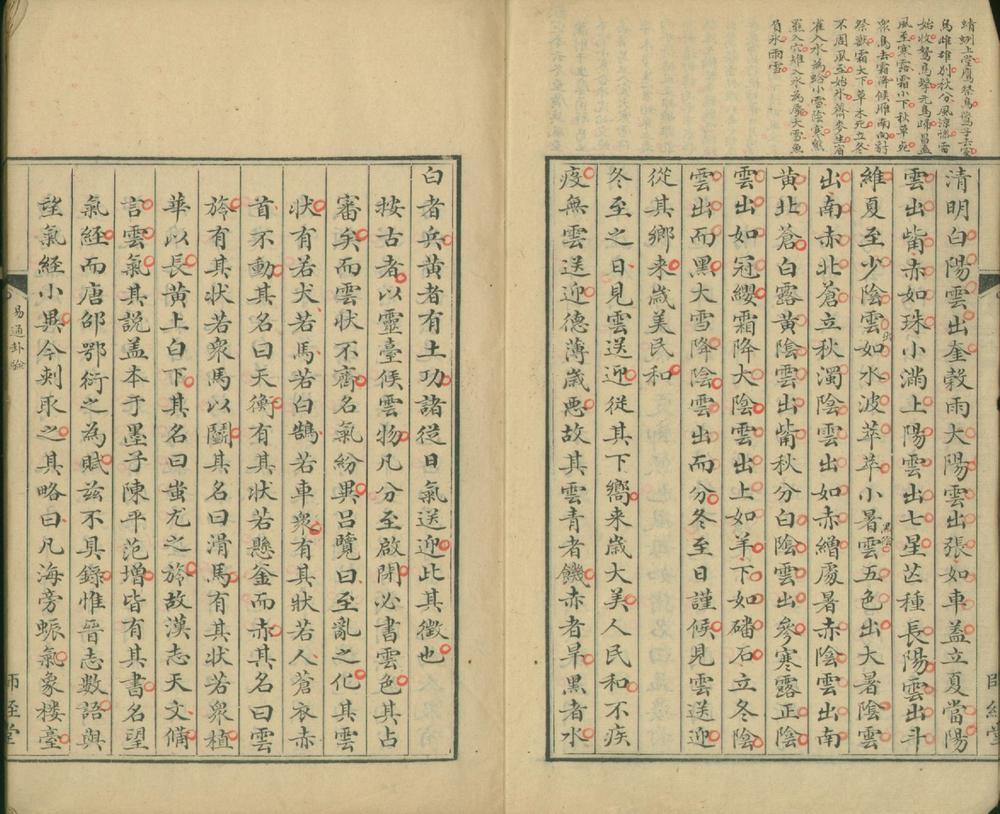 蜻蛚上堂鷹祭鳥燕子去室
鳥雌雄別秋分風涼慘雷
始收鷙鳥擊元鳥歸昌盍
風至寒露霜小下秋草死
眾鳥去霜降候雁南向豺
祭獸霜大下草木死立冬
不周風至始氷薺麥生賓
雀入水為蛤小雪陰寒熊
羆入穴雉入水為蜃大雪魚
負氷雨雪
清明白陽雲出奎榖雨大陽雲出張如車蓋立夏當陽
雲出觜赤如珠小滿上陽雲出七星芒種長陽雲出斗
維夏至少陰雲如水波萃萃小暑雲五色出大暑陰雲
出南赤北蒼立秋濁陰雲出如赤繒處暑赤陰雲出南
黃北蒼白露黃陰雲出觜秋分白陰雲出參寒露正陰
雲出如冠纓霜降大陰雲出上如羊下如磻石立冬陰
雲出而黑大雪降陰雲出而分冬至日謹候見雲送迎
從其鄉來歲美民和
冬至之日見雲送迎從其下嚮来歲大美人民和不疾
疫無雲送迎德薄歲惡故其雲青者饑赤者旱黑者水
白者兵黃者有土功諸從日氣送迎此其徵也
按古者以靈臺候雲物凡分至啟閉必書雲色其占
審矣而雲狀不齊名氣紛異呂覽曰至亂之化其雲
狀有若犬若馬若白鵠若車衆有其狀若人蒼衣赤
首不動其名曰天衡有其狀若懸釜而赤其名曰雲
旍有其狀若衆馬以鬭其名曰滑馬有其狀若衆植
華以長黃上白下其名曰蚩尤之旍故漢志天文備
言雲氣其說盖本于墨子陳平范增皆有其書名望
氣經而唐邵鄂衍之為賦兹不具錄惟晉志數語與
望氣經小異今剌取之其略曰凡海旁蜄氣象樓臺
易通卦驗
師經堂